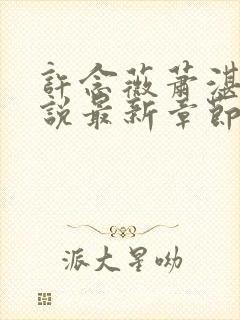 許念薇蕭湛
說最新章節
派大星呦